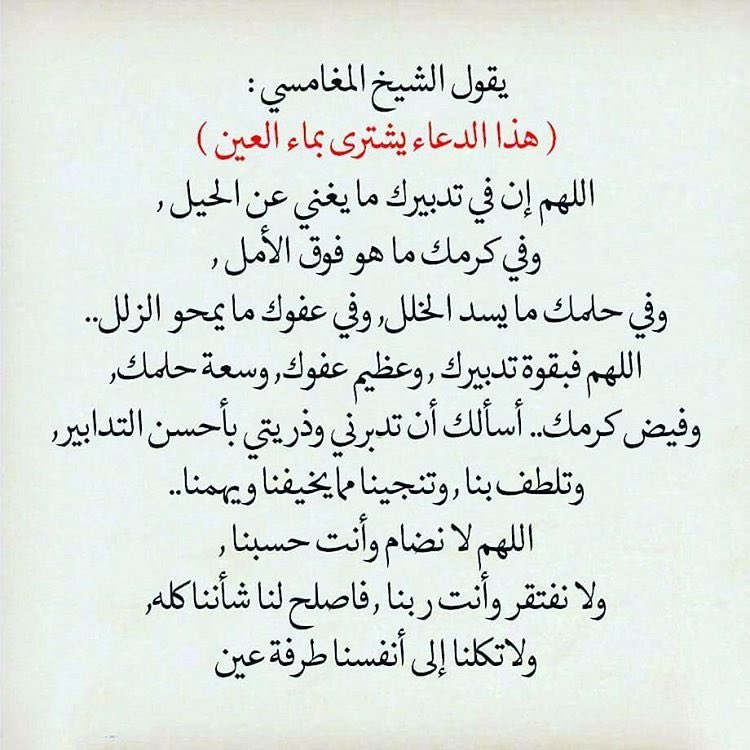 يقول الشيخ المغامسي :
( هذا الدعاء يشترى بماء العين )
اللهم إن في تدبيرك ما يغني عن الحيل ,
وفي كرمك ما هو فوق الأمل ,
وفي حلمك ما يسد الخلل, وفي عفوك ما يمحو الزلل..
اللهم فبقوة تدبيرك , وعظيم عفوك, وسعة حلمك,
وفيض كرمك.. أسألك أن تدبرني وذريتي بأحسن التدابير,
وتلطف بنا , وتنجينا مما يخيفنا ويهمنا..
اللهم لا نضام وأنت حسبنا ,
ولا نفتقر وأنت ربنا , فاصلح لنا شأننا كله,
ولا تكلنا إلى أنفسنا طرفة عين